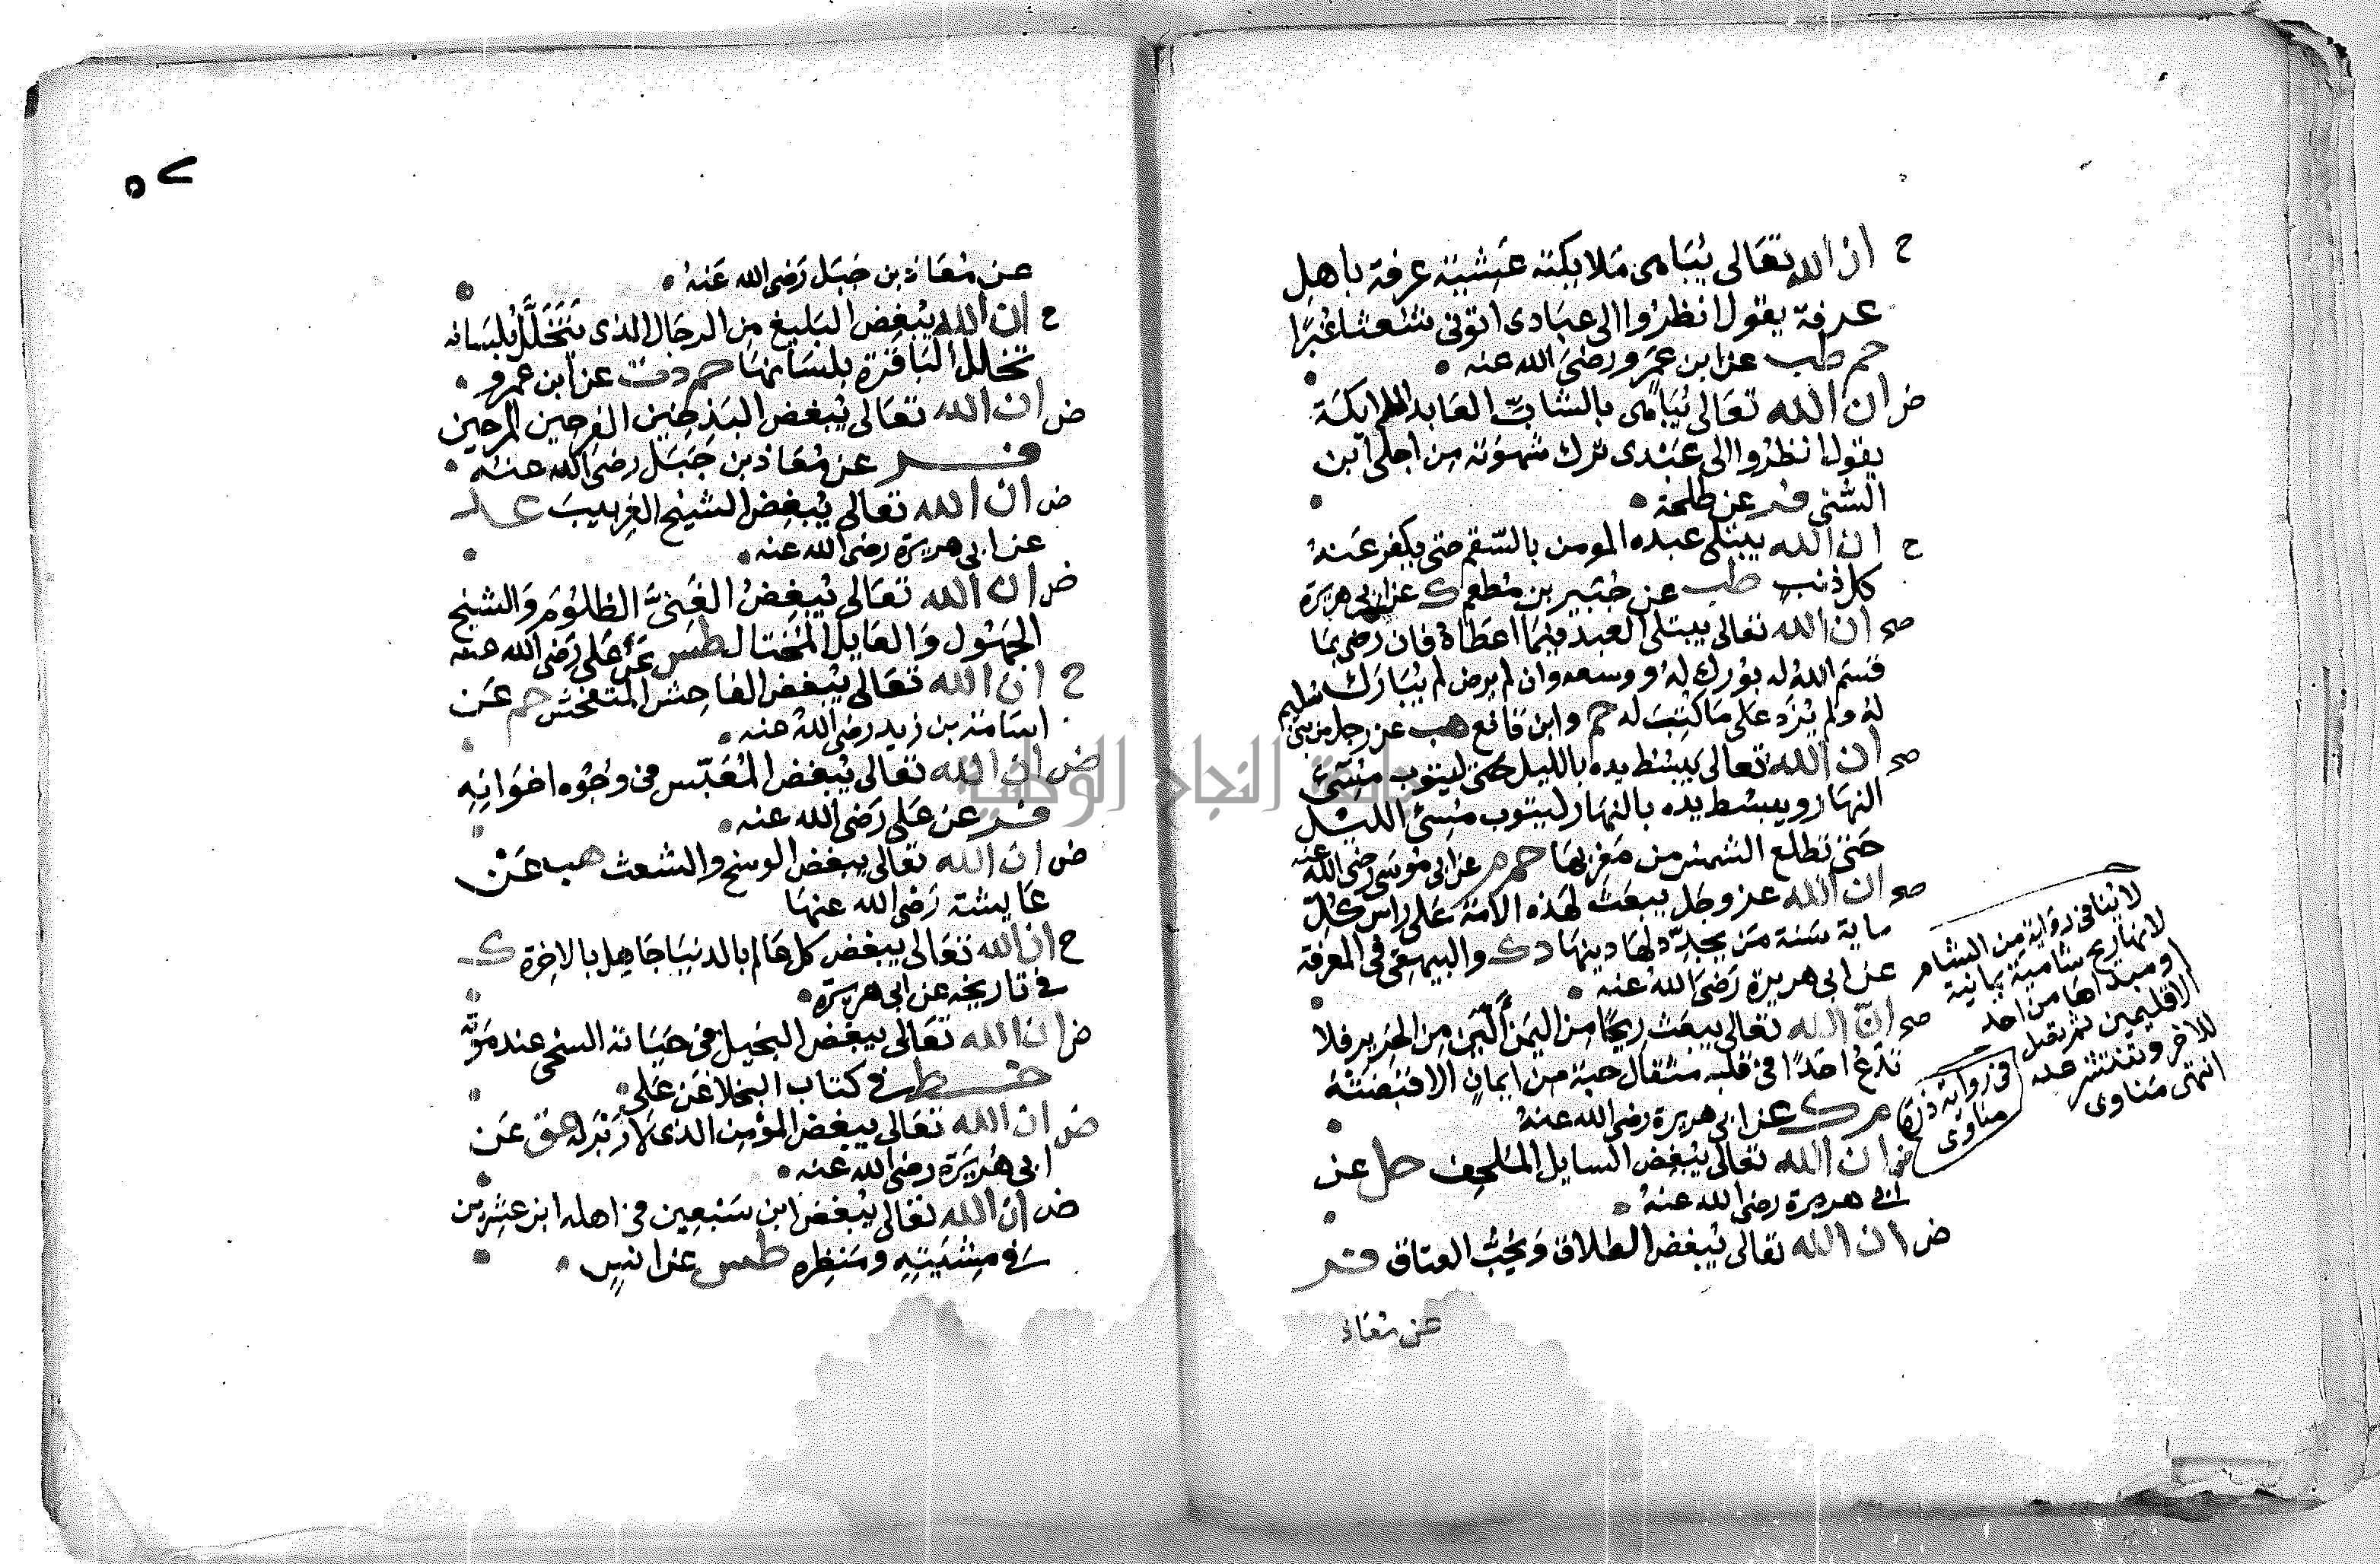 ح ان الله تعالى يباهى ملايكته عشية عرفة باهل
عرفة يقول انظروا الى عبادى اتونى شعثا غبرا
حم طب عن ابن عمرو رضى الله عنه
ض ان الله تعالى يباهى بالشاب العابد الملايكة
يقول انظروا الى عبدى ترك شهوته من اجلى ابن
السنى فر عن طلحة
ح ان الله يبتلى عبده المومن بالسقم حتى يكفر عنه
كل ذنب طب عن جبير بن مطعم ك عن ابى هريرة
صح ان الله تعالى يبتلى العبد فيما اعطاه فان رضى بما
قسم الله له بورك له ووسعه وان لم يرض لم يبارك
له ولم يزد على ما كتب له حم وابن قانع هب عن رجل من بنى سليم
صح ان الله تعالى يبسط يده بالليل حتى ليتوب مسئ
النهار ويبسط يده بالنهار ليتوب مسئ الليل
حتى تطلع الشمس من مغربها حم م عن ابى موسى رضى الله عنه
صح ان الله عز وجل يبعث لهذه الامة على راس كل
ماية سنة من يجدد لها دينها د ك والبيهقى فى المعرفة
عن ابى هريرة رضى الله عنه
صح ان الله تعالى يبعث ريحا من اليمن ألين من الحرير فلا
تدع احدا فى قلبه مثقال حبة من ايمان الا قبضته
م ك عن ابى هريرة رضى الله عنه
ض ان الله تعالى يبغض السايل الملحف حل عن
ابى هريرة رضى الله عنه
ض ان الله تعالى يبغض الطلاق ويحب العتاق فر
عن معاذ
لا ينافى رواية من الشام
لانها ريح شامية يمانية
او مبداها من احد
الاقليمين ثم تقبل
للاخر وتنتشر عنه
انتهى مناوى
فى رواية ذرة
مناوى
عن معاذ بن جبل رضى الله عنه
ح ان الله يبغض البليغ من الرجال الذى يتخلل بلسانه
تخلل الباقرة بلسانها حم د ت عن ابن عمرو
ض ان الله تعالى يبغض البذخين الفرحين المرحين
فر عن معاذ بن جبل رضى الله عنه
ض ان الله تعالى يبغض الشيخ الغربيب عد
عن ابى هريرة رضى الله عنه
ض ان الله تعالى يبغض الغنى الظلوم والشيخ
الجهول والعايل المختال طس عن على رضى الله عنه
ح ان الله تعالى يبغض الفاحش المتفحش حم عن
اسامة بن زيد رضى الله عنه
ض ان الله تعالى يبغض المعبس فى وجوه اخوانه
فر عن على رضى الله عنه
ض ان الله تعالى يبغض الوسخ والشعث هب عن
عايشة رضى الله عنها
ح ان الله تعالى يبغض كل عالم بالدنيا جاهل بالاخرة ك
فى تاريخه عن ابى هريرة
ض ان الله تعالى يبغض البخيل فى حياته السخى عند موته
خط فى كتاب البخلا عن على
ض ان الله تعالى يبغض المؤمن الذى لا زبر له عق عن
ابى هريرة رضى الله عنه
ض ان الله تعالى يبغض ابن سبعين فى اهله ابن عشرين
فى مشيته ومنظره طس عن انس
جامعة النجاح الوطنية